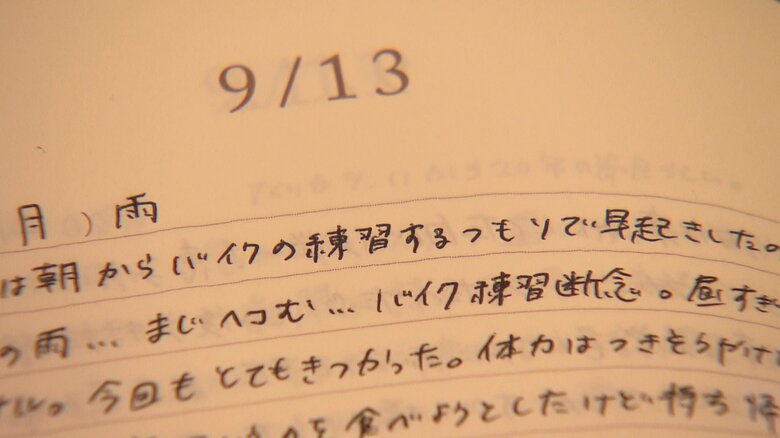 9/13
月）雨
は朝からバイクの練習するつもりで早起きした。
の雨…まじヘコむ…バイク練習断念。昼すぎ
今回もとてもきつかった。体力はつきそうだけ
を食べようとしたけど持ち帰